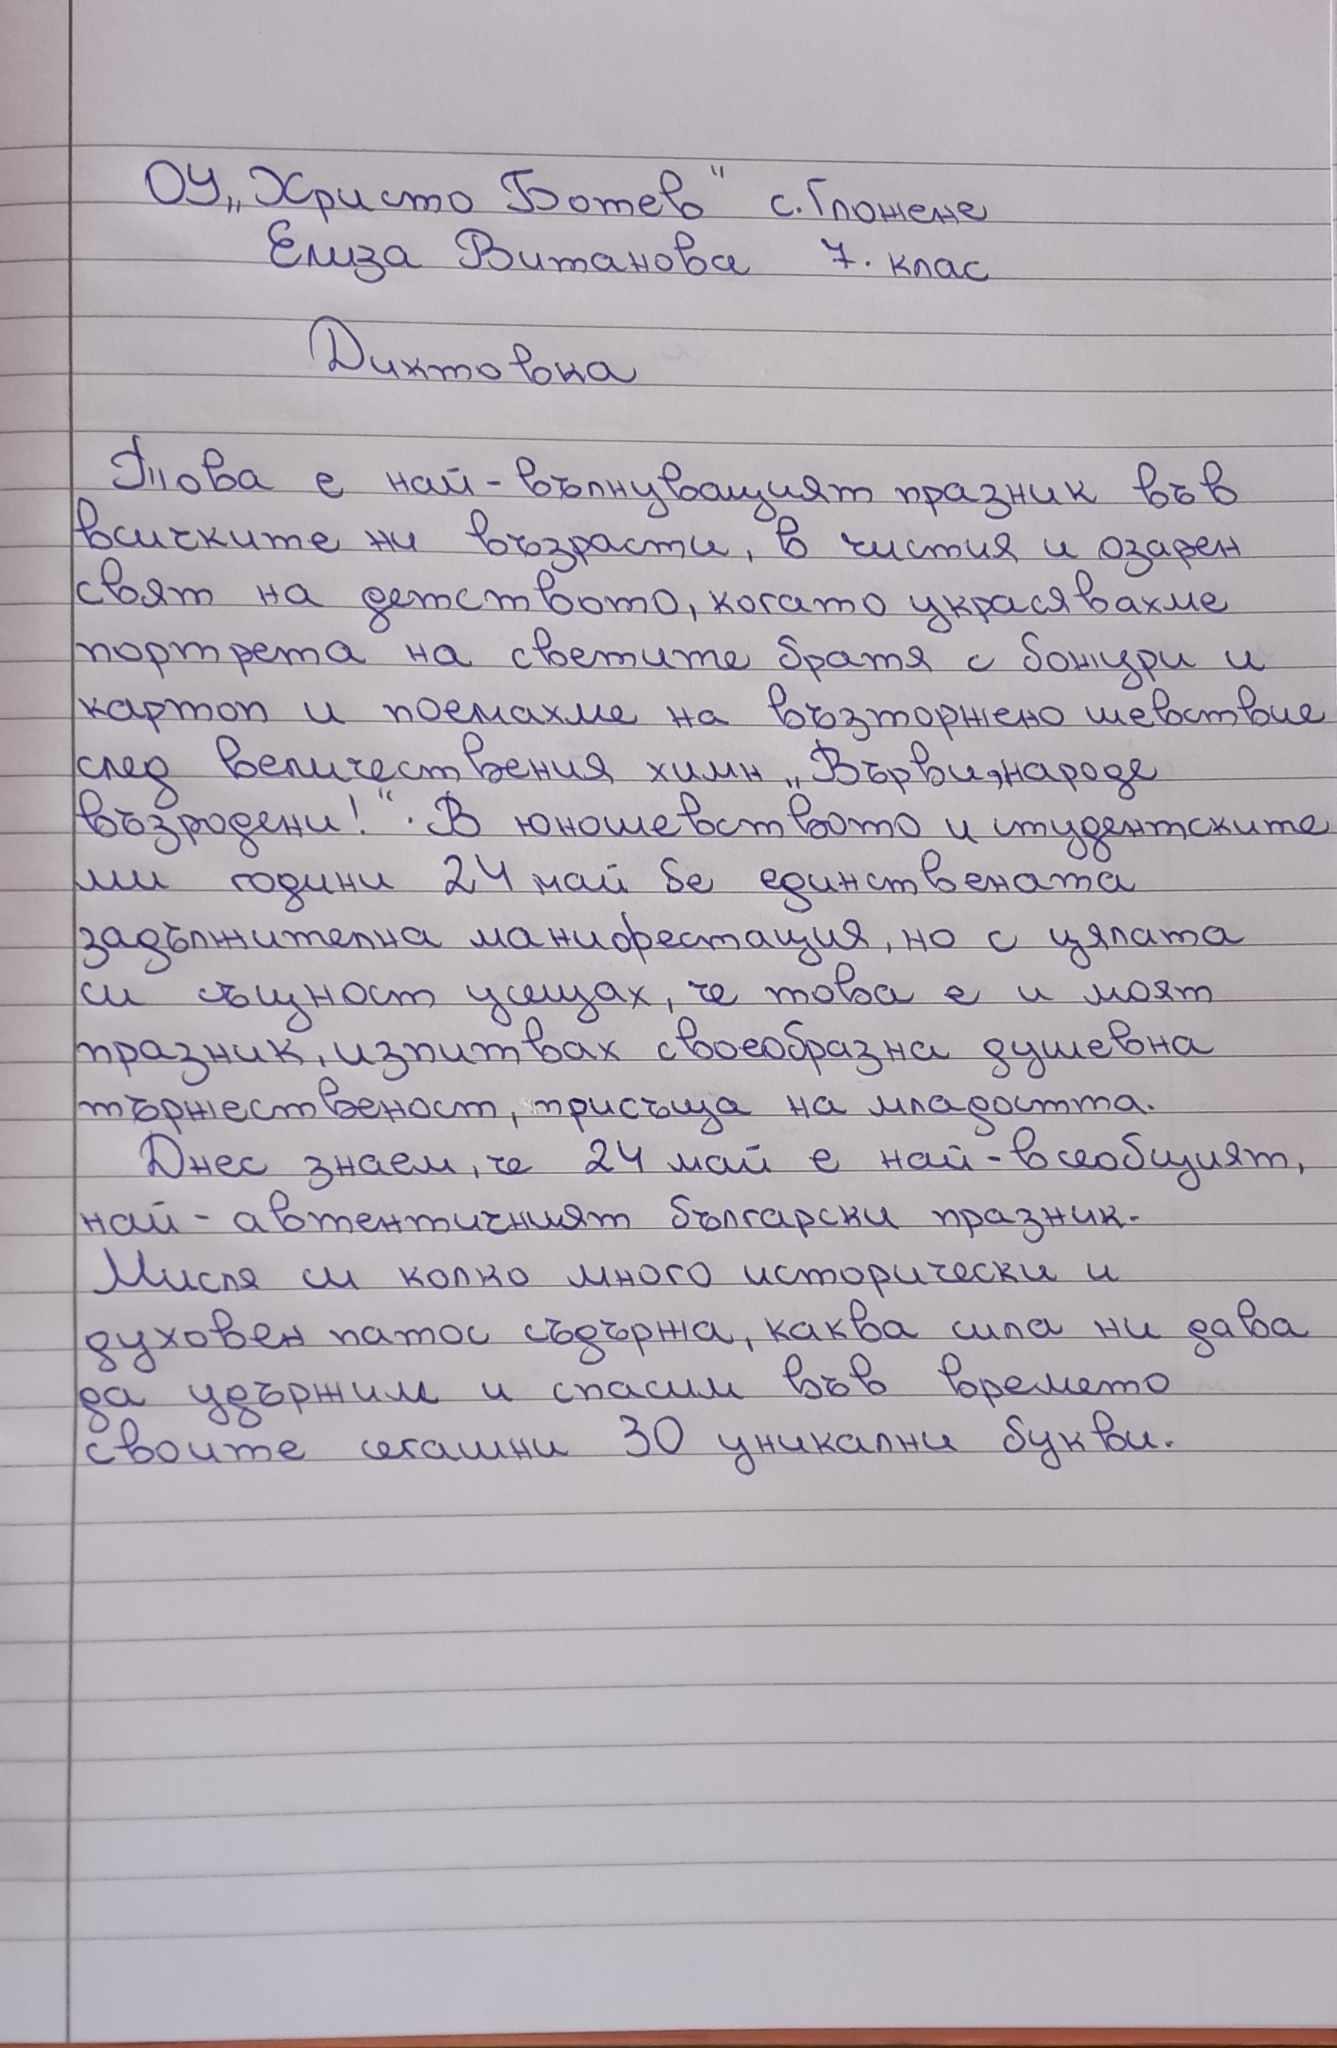 ОУ „Христо Ботев" с. Гложене
Елиза Витанова 7. клас
Диктовка
Това е най-вълнуващият празник във
всичките ни възрасти, в чистия и озарен
свят на детството, когато украсявахме
портрета на светите братя с божури и
картоп и поемахме на възторжено шевствие
след величествения химн „Върви, народе
възродени!“. В юношевството и студентските
ми години 24 май бе единствената
задължителна манифестация, но с цялата
си същност усещах, че това е и моят
празник, изпитвах своеобразна душевна
тържественост, присъща на младостта.
Днес знаем, че 24 май е най-всеобщият,
най-автентичният български празник.
Мисля си колко много исторически и
духовен патос съдържа, каква сила ни дава
да удържим и спасим във времето
своите сегашни 30 уникални букви.